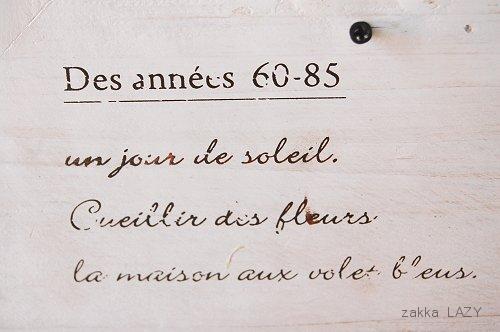 Des années 60-85
un jour de soleil.
Cueillir des fleurs
la maison aux volet bleus.
zakka LAZY